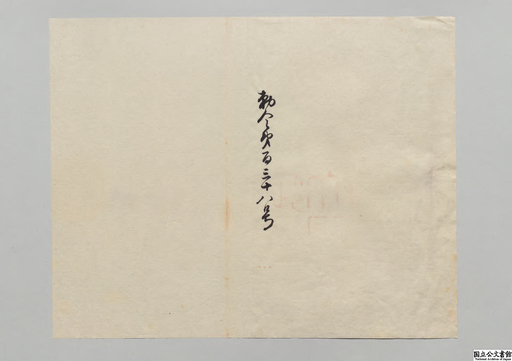 勅令第百三十八号
国立公文書館
National Archives of Japan